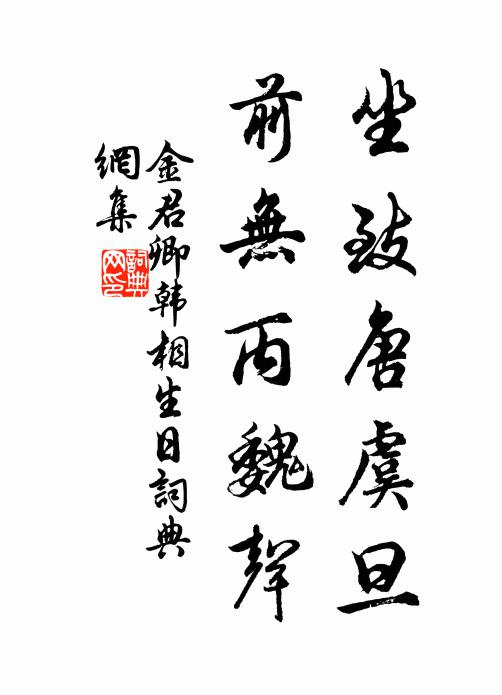 坐致唐虞旦
前無丙魏聲
金君卿韩相生日詞典
網集
詞典网印